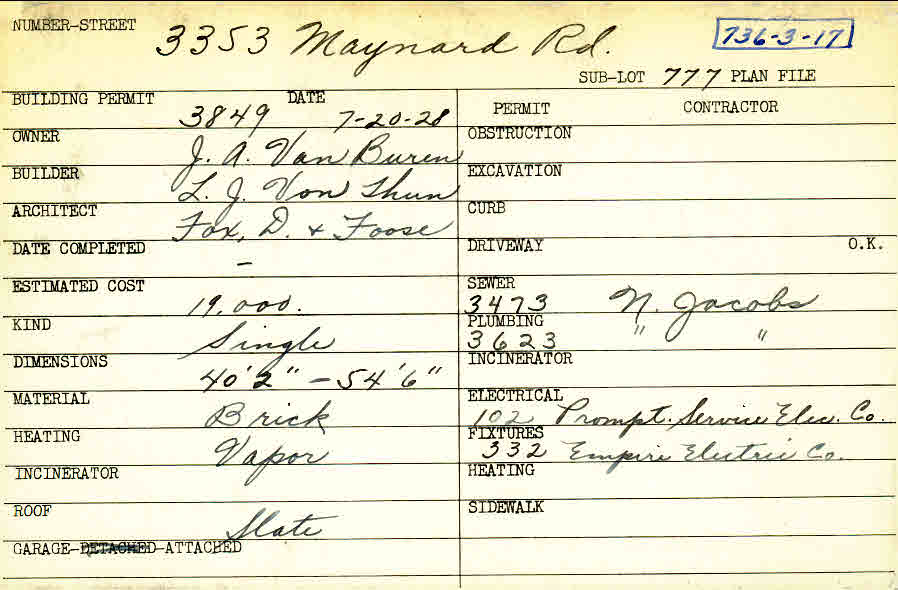 NUMBER-STREET 3353 Maynard Rd. 736-3-17
SUB-LOT 777 PLAN FILE
BUILDING PERMIT 3849 DATE 7-20-28
OWNER J. A. Van Buren
BUILDER L. J. Von Thun
ARCHITECT Fox, D. & Foose
DATE COMPLETED -
ESTIMATED COST 19,000.
KIND Single
DIMENSIONS 40'2" - 54'6"
MATERIAL Brick
HEATING Vapor
INCINERATOR
ROOF Slate
GARAGE-DETACHED-ATTACHED
PERMIT CONTRACTOR
OBSTRUCTION
EXCAVATION
CURB
DRIVEWAY O.K.
SEWER
3473 N. Jacobs
PLUMBING
3623 " "
INCINERATOR
ELECTRICAL
102 Prompt. Service Elec. Co.
FIXTURES
332 Empire Electric Co.
HEATING
SIDEWALK